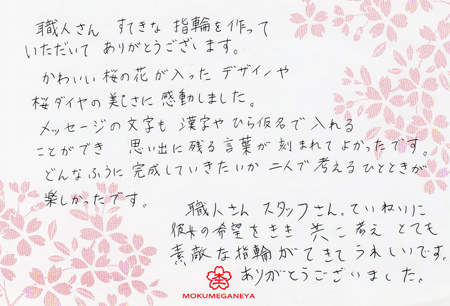 職人さん すてきな 指輪を作って
いただいて ありがとうございます。
かわいい桜の花が入った デザインや
桜ダイヤの美しさに感動しました。
メッセージの文字も 漢字や ひら仮名で 入れる
ことができ 思い出に残る言葉が 刻まれて よかったです。
どんなふうに 完成していきたいか 二人で 考える ひとときが
楽しかったです。
職人さん スタッフさん、ていねいに
彼の希望をきき 共に考え とても
素敵な指輪ができて うれしいです。
ありがとうございました。
MOKUMEGANEYA